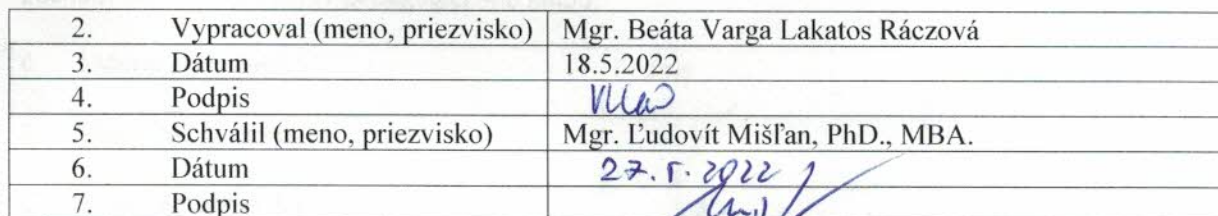 2. Vypracoval (meno, priezvisko) Mgr. Beáta Varga Lakatos Ráczová
3. Dátum 18.5.2022
4. Podpis
5. Schválil (meno, priezvisko) Mgr. Ľudovít Mišľan, PhD., MBA.
6. Dátum 27.5.2022
7. Podpis